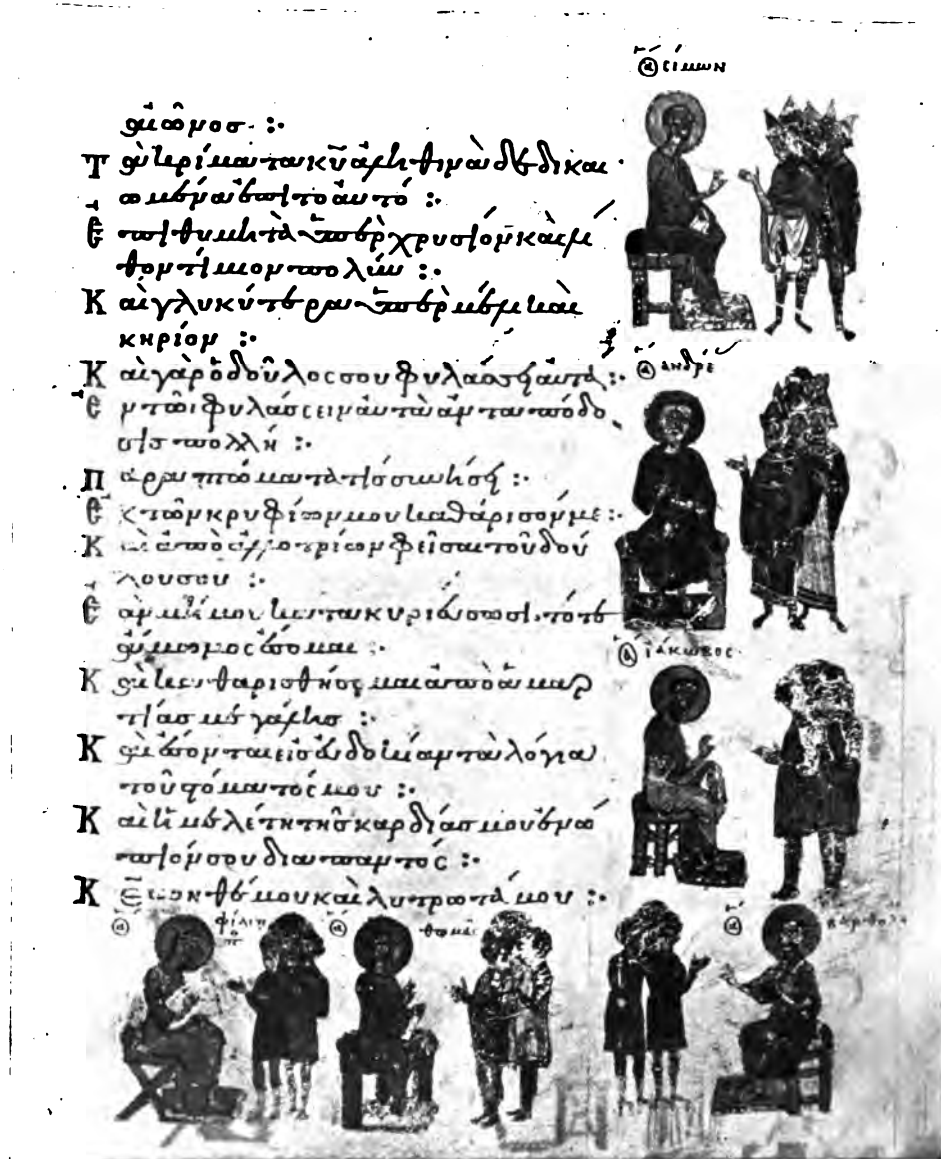 ὁ ἅ(γιος) σίμων
αἰῶνοσ :·
Τὰ κρίματα κ̅υ̅ ἀληθινὰ δεδικαι
ωμένα ἐπὶ τὸ αὐτό :·
Ἐπιθυμητὰ ὑπὲρ χρυσίον καὶ λί
θον τίμιον πολύν :·
Καὶ γλυκύτερα ὑπὲρ μέλι καὶ
κηρίον :·
Καὶ γὰρ ὁ δοῦλος σου φυλάσσει αὐτά :·
ὁ ἅ(γιος) ἀνδρέ
Ἐν τῶι φυλάσσειν αὐτὰ ἀνταπόδο
σισ πολλή :·
Παραπτώματα τίσ συνήσει :·
Ἐκ τῶν κρυφίων μου καθάρισόν με :·
Καὶ ἀπὸ ἀλλοτρίων φεῖσαι τοῦ δού
λου σου :·
Ἐὰν μή μου κατακυριεύσωσι, τότε
ἄμωμος ἔσομαι :·
ὁ ἅ(γιος) ἰάκωβος
Καὶ καθαρισθήσομαι ἀπὸ ἁμαρ
τίασ μεγάλησ :·
Καὶ ἔσονται εἰσ εὐδοκίαν τὰ λόγια
τοῦ στόματός μου :·
Καὶ ἡ μελέτη τῆσ καρδίασ μου ἐνώ
πιόν σου διαπαντός :·
Κ̅ε̅ βοηθέ μου καὶ λυτρωτά μου :·
ὁ ἅ(γιος) φίλιπ
π
ὁ ἅ(γιος) θωμᾶς
ὁ ἅ(γιος) βαρθολο